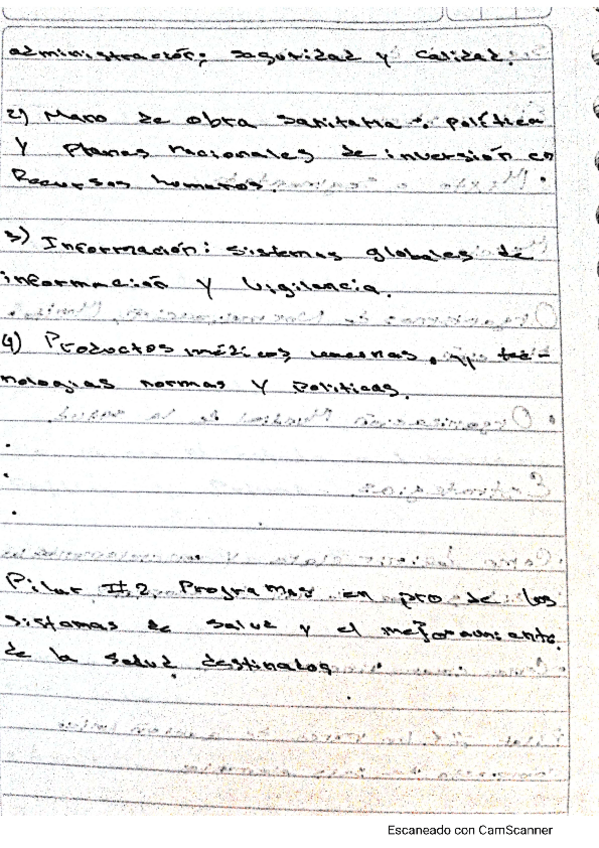 administración, seguridad y calidad.
2) Mano de obra sanitaria: política
y planes nacionales de inversión en
Recursos humanos.
3) Información: sistemas globales de
información y vigilancia.
4) Productos médicos, vacunas, y tec-
nologías normas y políticas.
Pilar #2. Programas en pro de los
sistemas de salud y el mejoramiento
de la salud destinados
Escaneado con CamScanner